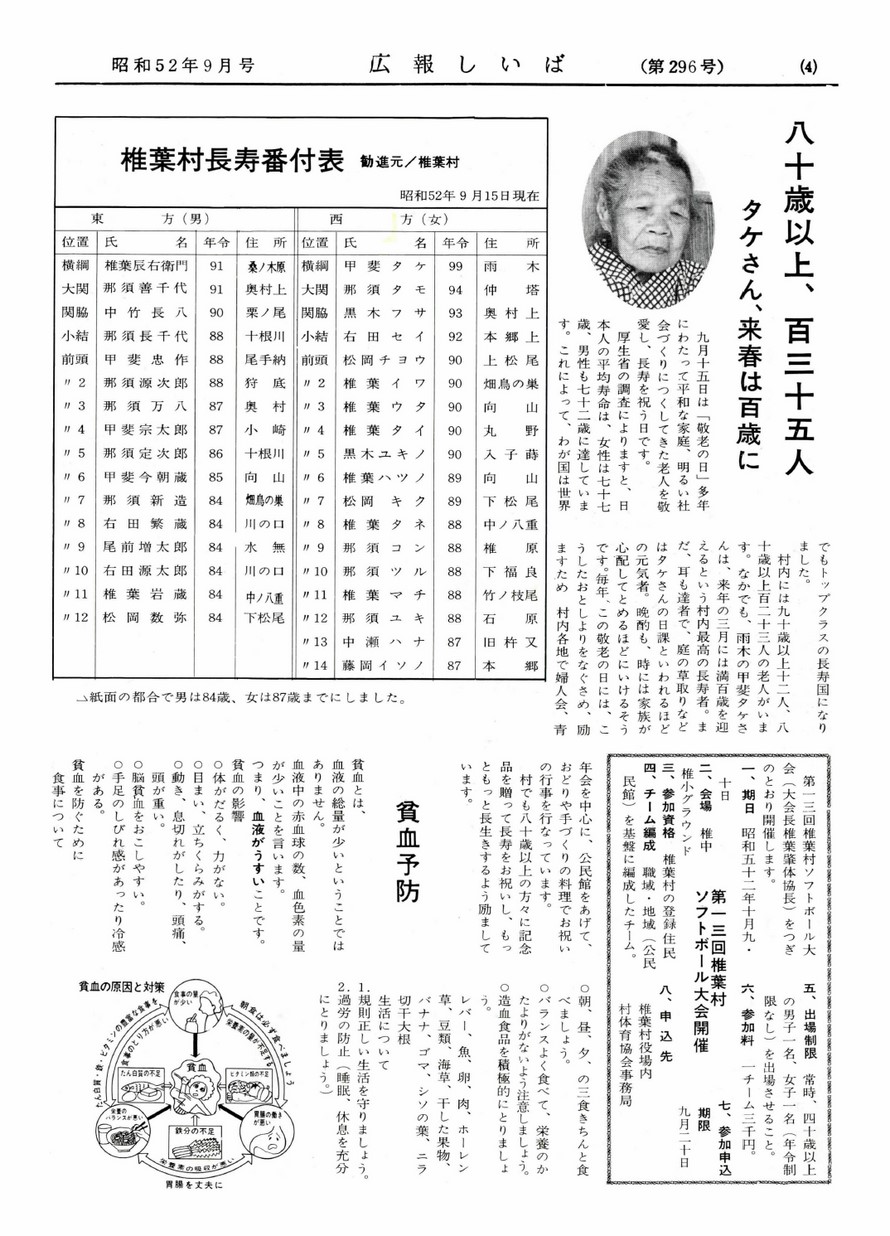 昭和52年9月号
広報しいば
(第296号)
(4)
八十歳以上、百三十五人
タケさん、来春は百歳に
九月十五日は「敬老の日」多年
にわたって平和な家庭、明るい社
会づくりにつくしてきた老人を敬
愛し、長寿を祝う日です。
厚生省の調査によりますと、日
本人の平均寿命は、女性は七十七
歳、男性も七十二歳に達していま
す。これによって、わが国は世界
でもトップクラスの長寿国になり
ました。
村内には九十歳以上十二人、八
十歳以上百二十三人の老人がいま
す。なかでも、雨木の甲斐タケさ
んは、来年の三月には満百歳を迎
えるという村内最高の長寿者。ま
だ、耳も達者で、庭の草取りなど
はタケさんの日課といわれるほど
の元気者。晩酌も、時には家族が
心配してとめるほどにいけるそう
です。毎年、この敬老の日には、こ
うしたおとしよりをなぐさめ、励
ますため 村内各地で婦人会、青
年会を中心に、公民館をあげて、
おどりや手づくりの料理でお祝い
の行事を行なっています。
村でも八十歳以上の方々に記念
品を贈って長寿をお祝いし、もっ
ともっと長生きするよう励まして
います。
椎葉村長寿番付表 勧進元/椎葉村
昭和52年9月15日現在
東方(男) 西方(女)
位置 氏名 年令 住所 位置 氏名 年令 住所
横綱 椎葉辰右衛門 91 桑ノ木原 横綱 甲斐タケ 99 雨木
大関 那須善千代 91 奥村上 大関 那須タモ 94 仲塔
関脇 中竹長八 90 栗ノ尾 関脇 黒木フサ 93 奥村上
小結 那須長千代 88 十根川 小結 右田セイ 92 本郷上
前頭 甲斐忠作 88 尾手納 前頭 松岡チヨウ 90 上松尾
〃2 那須源次郎 88 狩底 〃2 椎葉イワ 90 畑鳥の巣
〃3 那須万八 87 奥村 〃3 椎葉ウタ 90 向山
〃4 甲斐宗太郎 87 小崎 〃4 椎葉タイ 90 丸野
〃5 那須定次郎 86 十根川 〃5 黒木ユキノ 90 入子蒔
〃6 甲斐今朝蔵 85 向山 〃6 椎葉ハツノ 89 向山
〃7 那須新造 84 畑鳥の巣 〃7 松岡キク 89 下松尾
〃8 右田繁蔵 84 川の口 〃8 椎葉タネ 88 中ノ八重
〃9 尾前増太郎 84 水無 〃9 那須コン 88 椎原
〃10 右田源太郎 84 川の口 〃10 那須ツル 88 下福良
〃11 椎葉岩蔵 84 中ノ八重 〃11 椎葉マチ 88 竹ノ枝尾
〃12 松岡数弥 84 下松尾 〃12 那須ユキ 88 石原
〃13 中瀬ハナ 87 旧杵又
〃14 藤岡イソノ 87 本郷
△紙面の都合で男は84歳、女は87歳までにしました。
第一三回椎葉村
ソフトボール大会開催
第一三回椎葉村ソフトボール大
会(大会長椎葉肇体協長)をつぎ
のとおり開催します。
一、期日 昭和五十二年十月九・
十日
二、会場 椎中
椎小グラウンド
三、参加資格 椎葉村の登録住民
四、チーム編成 職域・地域(公民
民館)を基盤に編成したチーム。
五、出場制限 常時、四十歳以上
の男子一名、女子一名(年令制
限なし)を出場させること。
六、参加料 一チーム三千円。
七、参加申込
期限
九月二十日
八、申込先
椎葉村役場内
村体育協会事務局
貧血予防
貧血とは、
血液の総量が少いということでは
ありません。
血液中の赤血球の数、血色素の量
が少いことを言います。
つまり、血液がうすいことです。
貧血の影響
○体がだるく、力がない。
○目まい、立ちくらみがする。
○動き、息切れがしたり、頭痛、
頭が重い。
○脳貧血をおこしやすい。
○手足のしびれ感があったり冷感
がある。
貧血を防ぐために
食事について
○朝、昼、夕、の三食きちんと食
べましょう。
○バランスよく食べて、栄養のか
たよりがないよう注意しましょう。
○造血食品を積極的にとりましょ
う。
レバー、魚、卵、肉、ホーレン
草、豆類、海草、干した果物、
バナナ、ゴマ、シソの葉、ニラ
切干大根
生活について
1.規則正しい生活を守りましょう。
2.過労の防止(睡眠、休息を充分
にとりましょう。)
貧血の原因と対策
食事の量が少い
朝食は必ず食べましょう
栄養素の量が不足する
たん白質・鉄・ビタミンの豊富な食事を
食事のとり方が悪い
貧血
たん白質の不足
ビタミン類の不足
鉄分の不足
栄養のバランスが悪い
胃腸の働きが悪い
栄養素の吸収が悪い
胃腸を丈夫に